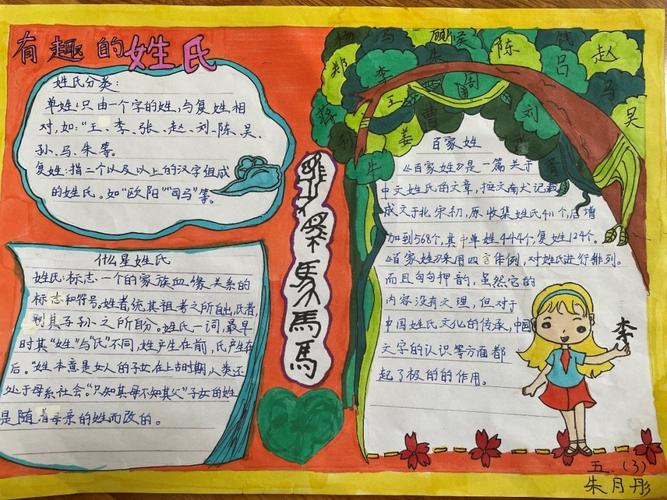 有趣的姓氏
姓氏分类：
单姓：只由一个字的姓，与复姓相
对，如："王、李、张、赵、刘、陈、吴、
孙、马、朱等。
复姓：指二个以及以上的汉字组成
的姓氏。如"欧阳""司马"等。
什么是姓氏
姓氏：标志一个的家族血缘关系的
标志和符号。姓者，统其祖考之所自出，氏者，
别其子孙之所自分。姓氏一词，最早
时其"姓"与"氏"不同，姓产生在前，氏产生在
后。"姓"本意是女人的子女在上古时期，人类还
处于母系社会。"只知其母不知其父"子女的姓
是随着母亲的姓而改的。
馬馬
杨
郑
李
王
顾
侯
朱
陈
钱
吕
赵
马
吴
周
曹
姜
牛
百家姓
《百家姓》是一篇关于
中文姓氏的文章，按文献记载，
成文于北宋初，原收集姓氏411个，后增
加到568个，其中单姓444个，复姓124个。
《百家姓》采用四言体例，对姓氏进行排列。
而且句句押韵，虽然它的
内容没有文理，但对于
中国姓氏文化的传承，中国
文字的认识等方面都
起了极的的作用。
李
五.(3)
朱月彤